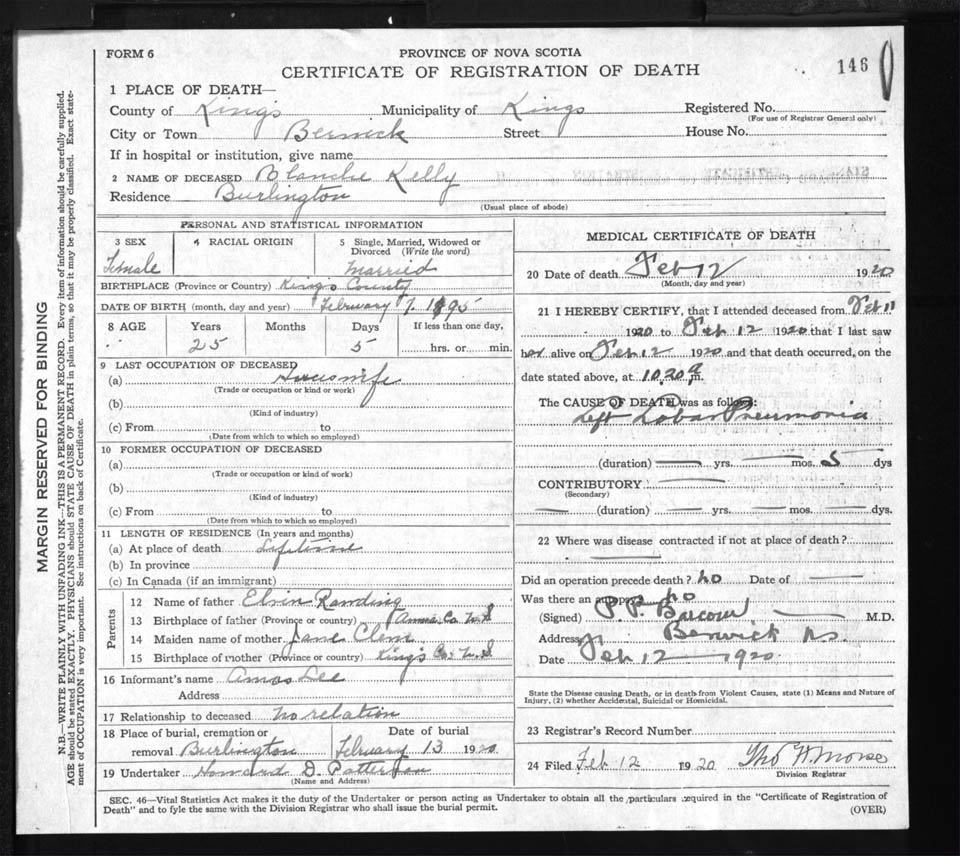 FORM 6
PROVINCE OF NOVA SCOTIA
CERTIFICATE OF REGISTRATION OF DEATH
146
1 PLACE OF DEATH—
County of Kings Municipality of Kings Registered No.
(For use of Registrar General only)
City or Town Berwick Street House No.
If in hospital or institution, give name
2 NAME OF DECEASED Blanche Kelly
Residence Burlington
(Usual place of abode)
PERSONAL AND STATISTICAL INFORMATION
3 SEX 4 RACIAL ORIGIN 5 Single, Married, Widowed or
Divorced (Write the word)
Female Married
BIRTHPLACE (Province or Country) Kings County
DATE OF BIRTH (month, day and year) February 7. 1895
8 AGE Years Months Days If less than one day,
25 5 hrs. or min.
9 LAST OCCUPATION OF DECEASED
(a) Housewife
(Trade or occupation or kind or work)
(b)
(Kind of industry)
(c) From to
(Date from which to which so employed)
10 FORMER OCCUPATION OF DECEASED
(a)
(Trade or occupation or kind of work)
(b)
(Kind of industry)
(c) From to
(Date from which to which so employed)
11 LENGTH OF RESIDENCE (In years and months)
(a) At place of death Lifetime
(b) In province
(c) In Canada (if an immigrant)
Parents
12 Name of father Elvin Rawding
13 Birthplace of father (Province or country) Anna. Co. N.S
14 Maiden name of mother Jane Clem
15 Birthplace of mother (Province or country) Kings Co. N.S
16 Informant's name Amos Lee
Address
17 Relationship to deceased No relation
18 Place of burial, cremation or Date of burial
removal Burlington February 13 1920
19 Undertaker Howard D. Patterson
(Name and Address)
MEDICAL CERTIFICATE OF DEATH
20 Date of death Feb 12 1920
(Month, day and year)
21 I HEREBY CERTIFY, that I attended deceased from Feb 11
1920 to Feb 12 1920 that I last saw
her alive on Feb 12 1920 and that death occurred, on the
date stated above, at 10.20 a m.
The CAUSE OF DEATH was as follows:
Left Lobar Pneumonia
(duration) yrs. mos. 5 dys
CONTRIBUTORY
(Secondary)
(duration) yrs. mos. dys.
22 Where was disease contracted if not at place of death?
Did an operation precede death? no Date of
Was there an autopsy? no
(Signed) P.P. M.D.
Address Berwick N.S.
Date Feb 12 1920
State the Disease causing Death, or in death from Violent Causes, state (1) Means and Nature of
Injury, (2) whether Accidental, Suicidal or Homicidal.
23 Registrar's Record Number
24 Filed Feb 12 1920 Tho H Morse
Division Registrar
SEC. 46—Vital Statistics Act makes it the duty of the Undertaker or person acting as Undertaker to obtain all the particulars required in the "Certificate of Registration of
Death" and to fyle the same with the Division Registrar who shall issue the burial permit.
(OVER)
MARGIN RESERVED FOR BINDING
N.B.—WRITE PLAINLY WITH UNFADING INK—THIS IS A PERMANENT RECORD. Every item of information should be carefully supplied.
AGE should be stated EXACTLY. PHYSICIANS should STATE CAUSE OF DEATH in plain terms, so that it may be properly classified. Exact state-
ment of OCCUPATION is very important. See instructions on back of Certificate.